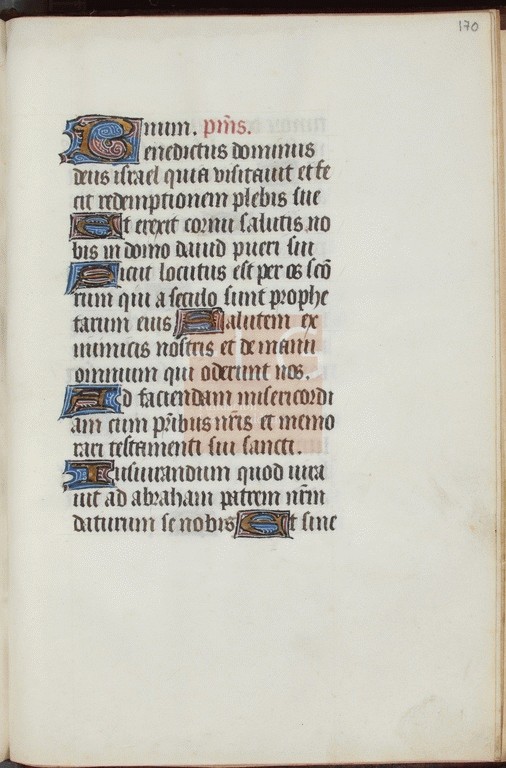 170
num. pm̄s.
Benedictus dominus
deus israel quia visitauit et fe
cit redemptionem plebis sue
Et erexit cornu salutis no
bis in domo dauid pueri sui
Sicut locutus est per os scō
rum qui a seculo sunt prophe
tarum eius Salutem ex
inimicis nostris et de manu
omnium qui oderunt nos.
Ad faciendam misericordi
am cum pr̄ibus nr̄is et memo
rari testamenti sui sancti.
Iusiurandum quod iura
uit ad abraham patrem nr̄m
daturum se nobis Et sine